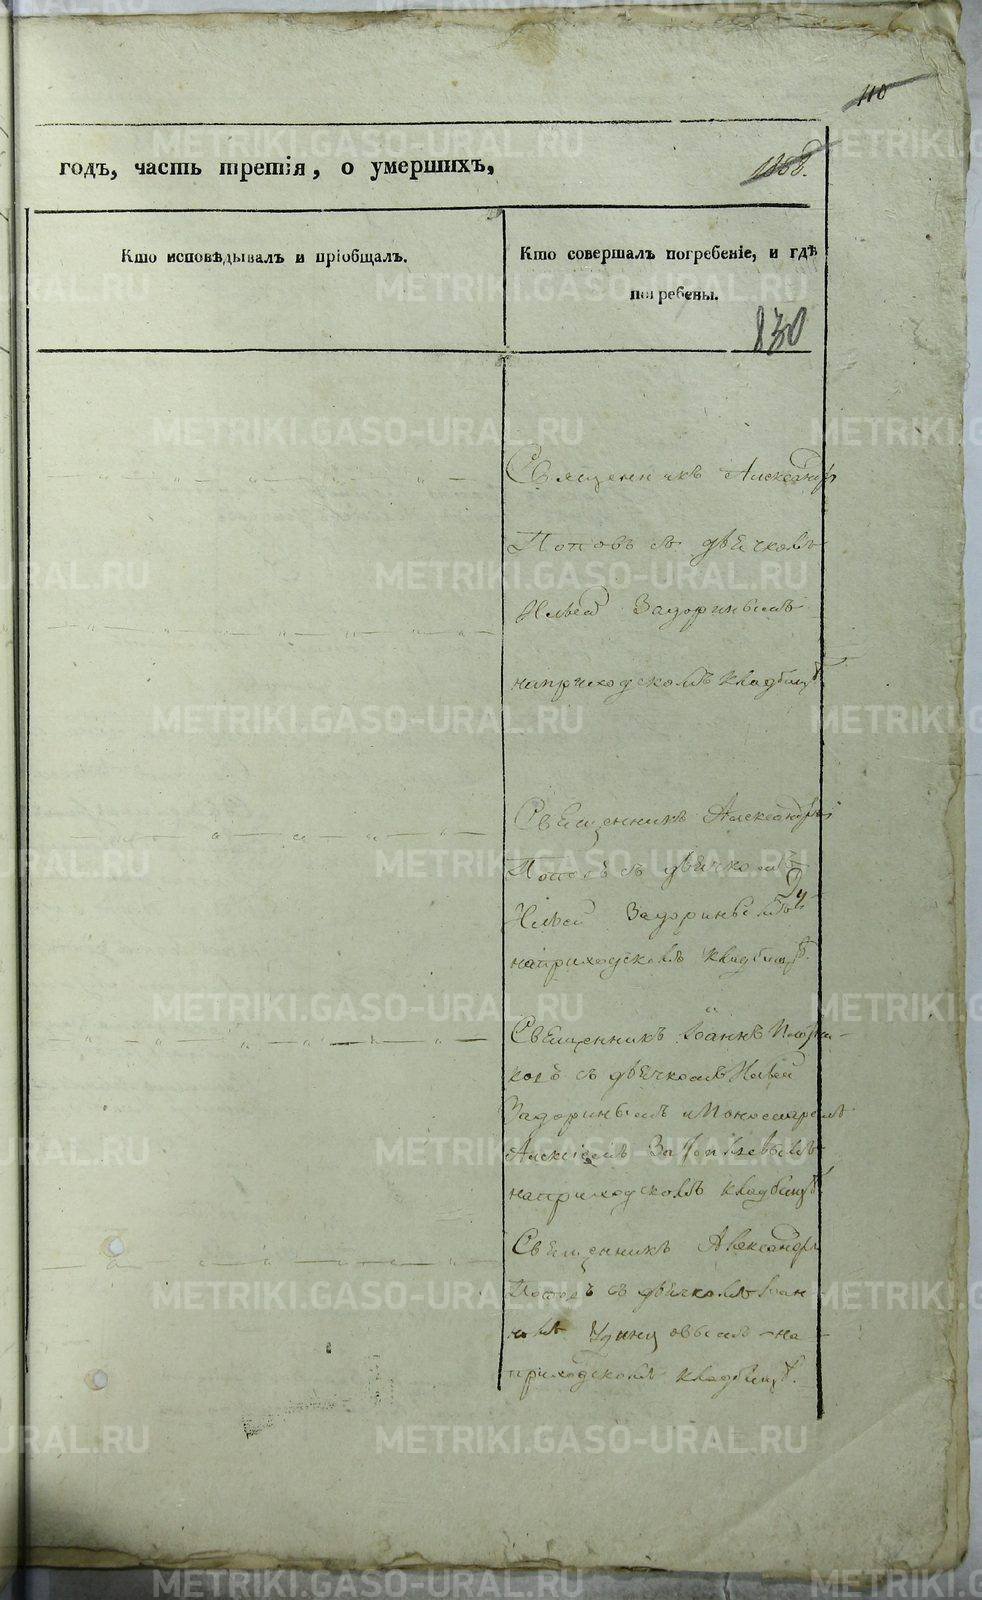 110
годъ, часть третія, о умершихъ,
Кто исповѣдывалъ и пріобщалъ.
Кто совершалъ погребеніе, и гдѣ
погребены.
830
Священникъ Александръ
Поповъ съ дьячкомъ
Ильей Задоринымъ
на приходскомъ кладбищѣ
Священникъ Александръ
Поповъ съ дьячкомъ
Ильей Задоринымъ
на приходскомъ кладбищѣ.
Священникъ Іоаннъ
съ дьячкомъ Ильей
Задоринымъ и Пономаремъ
Алексіемъ
на приходскомъ кладбищѣ
Священникъ Александръ
Поповъ съ дьячкомъ Іоан
номъ на
приходскомъ кладбищѣ.
METRIKI.GASO-URAL.RU